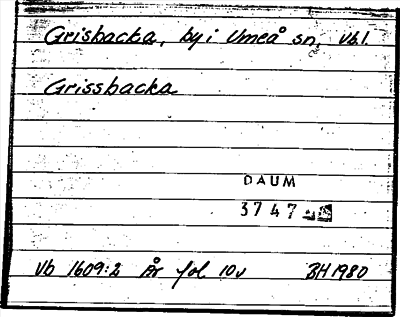 Grisbacka, by i Umeå sn, Vb.l.
Grissbacka
DAUM
3747
Vb 1609:2 År fol 10v BH 1980